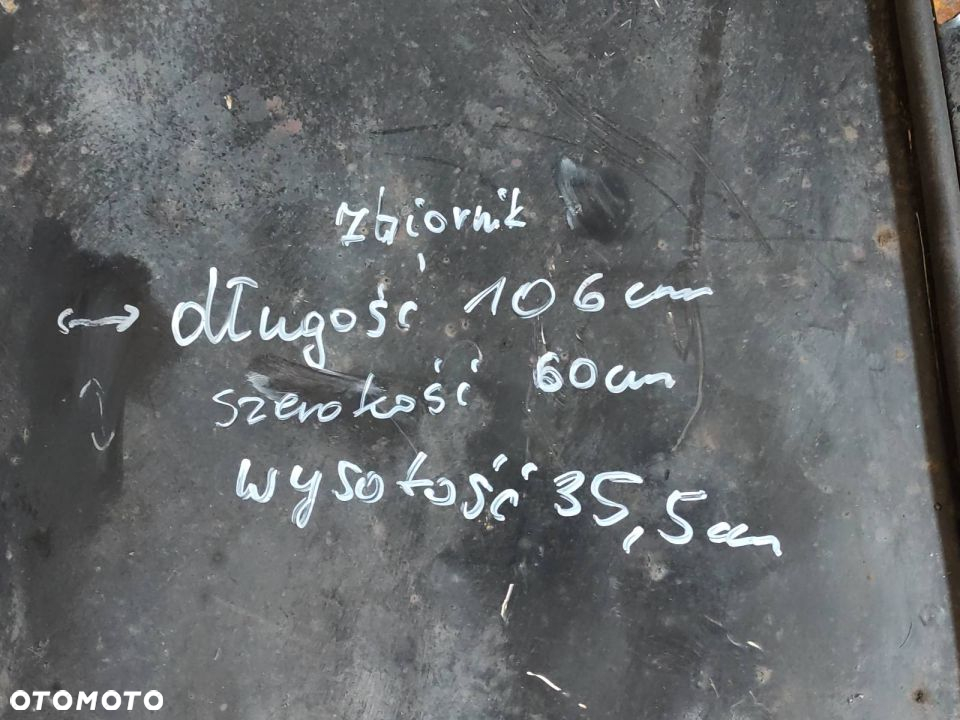 zbiornik
długość 106cm
szerokość 60cm
wysokość 35,5cm
OTOMOTO